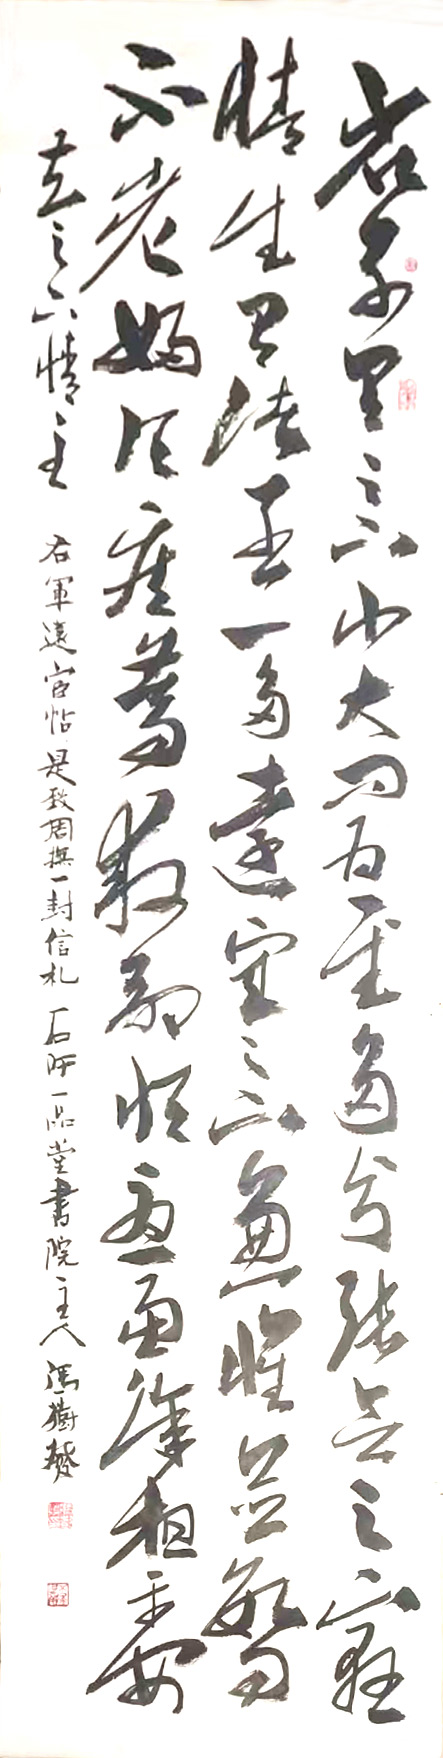 省别具足下小大问为慰多分张念足下悬
情武昌诸子亦多遠宦足下兼懷並數问
不老婦頃疾篤救命恒憂慮餘粗平安
知足下情至
右軍遠宦帖是致周撫一封信札 石阡一品堂書院主人馮樹發